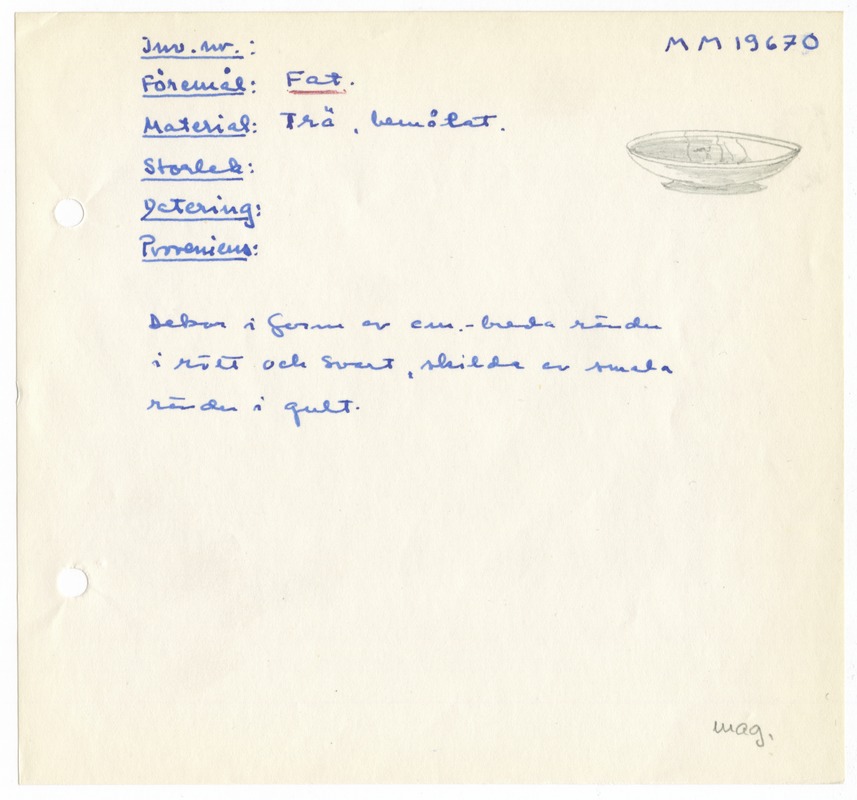 Inv.nr.: MM 19670
Föremål: Fat.
Material: Trä, bemålat.
Storlek:
Datering:
Proveniens:
Dekor i form av cm.-breda ränder
i rött och svart, skilda av smala
ränder i gult.
mag.